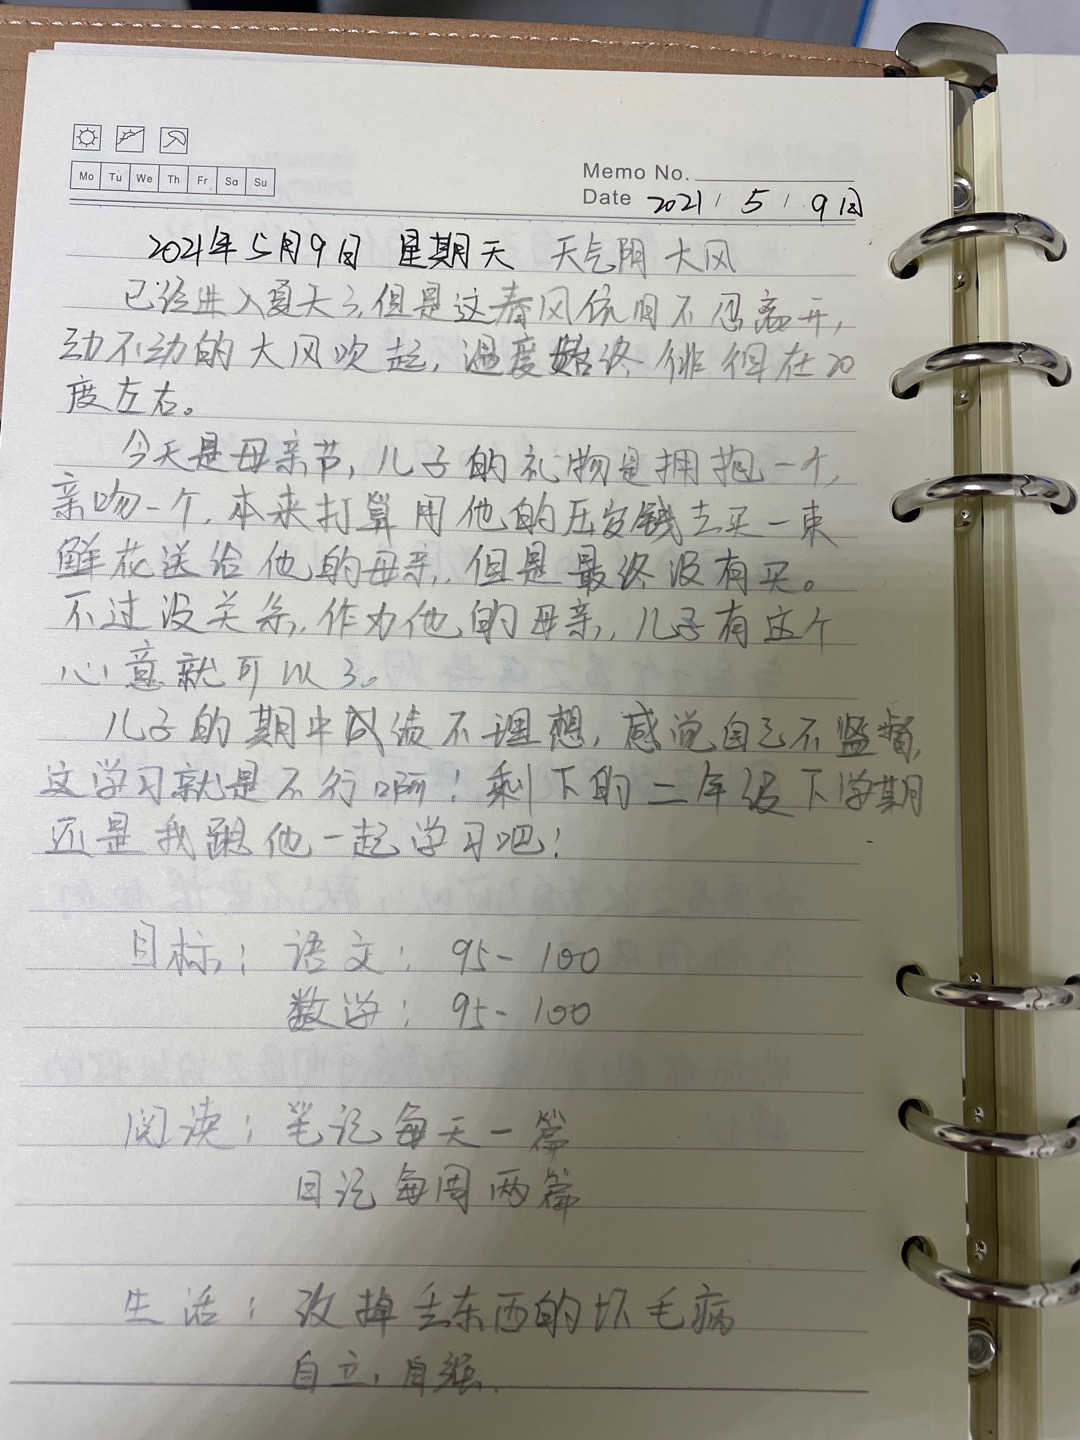 Mo Tu We Th Fr Sa Su
Memo No.
Date 2021 / 5 / 9日
2021年5月9日 星期天 天气阴 大风
已经进入夏天了,但是这春风依旧不想离开,
动不动的大风吹起,温度始终徘徊在20
度左右。
今天是母亲节,儿子的礼物是拥抱一个,
亲吻一个,本来打算用他的压岁钱去买一束
鲜花送给他的母亲,但是最终没有买。
不过没关系,作为他的母亲,儿子有这个
心意就可以了。
儿子的期中成绩不理想,感觉自己不监督,
这学习就是不行啊!剩下的二年级下学期
还是我跟他一起学习吧!
目标:语文:95-100
数学:95-100
阅读:笔记每天一篇
日记每周两篇
生活:改掉丢东西的坏毛病
自立,自强.